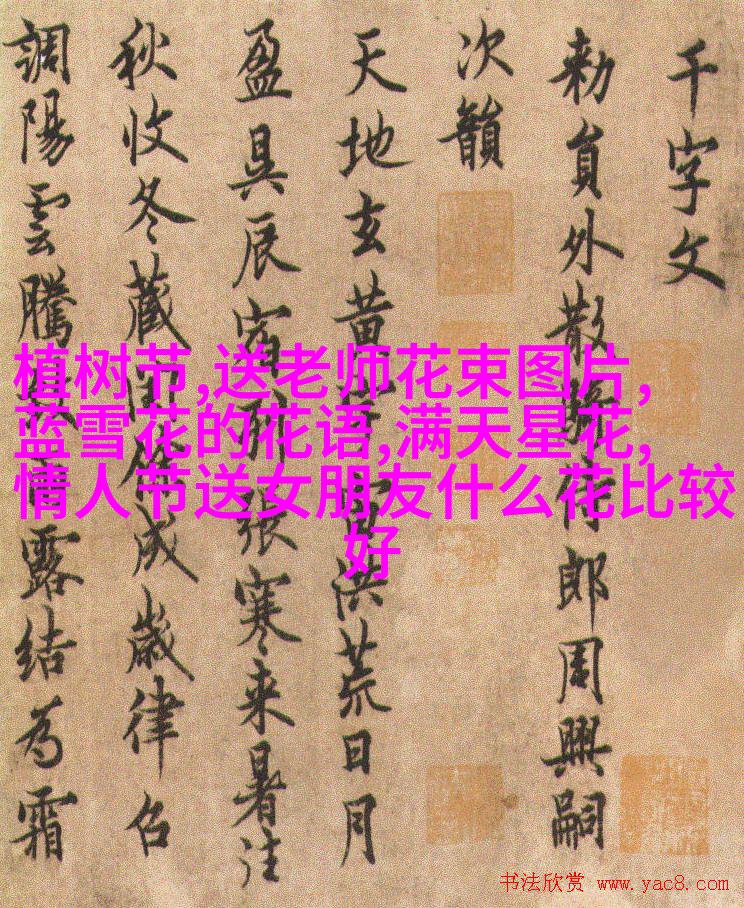 千字文
勑員外散騎侍郎周興嗣
次韻
天地玄黄宇宙洪荒日月
盈昃辰宿列張寒来暑往
秋收冬蔵閏餘成歳律召
調陽雲騰致雨露結為霜
植树节,送老师花束图片,
蓝雪花的花语,满天星花,
情人节送女朋友什么花比较
好
书法欣赏 www.yac8.com